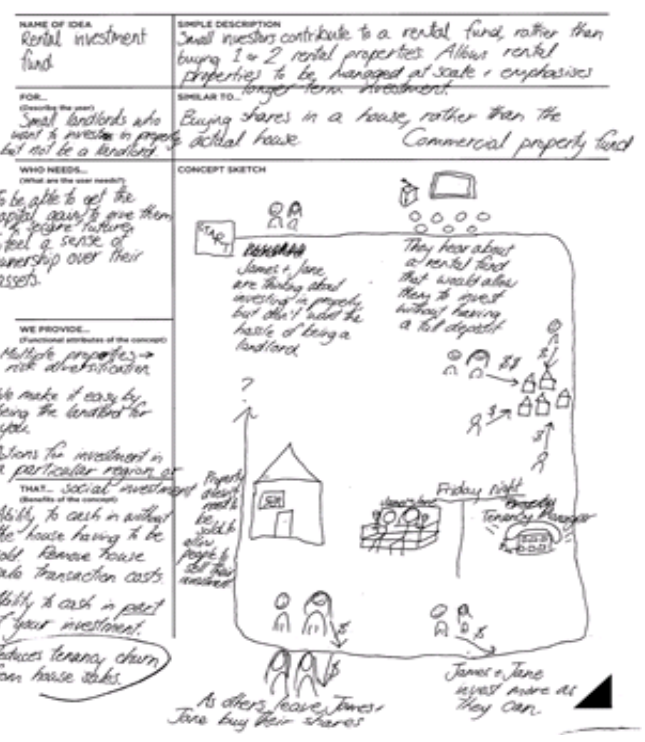 NAME OF IDEA
Rental investment
fund
SIMPLE DESCRIPTION
Small investors contribute to a rental fund, rather than
buying 1 or 2 rental properties. Allows rental
properties to be managed at scale + emphasises
longer term investment.
FOR...
(Describe the user)
Small landlords who
want to invest in property
but not be a landlord.
SIMILAR TO...
Buying shares in a house, rather than the
actual house.
Commercial property fund
WHO NEEDS...
(What are the user needs?)
To be able to get the
capital gains to give them
a secure future.
feel a sense of
ownership over their
assets.
WE PROVIDE...
(Functional attributes of the concept)
Multiple properties →
risk diversification
We make it easy by
being the landlord for
you
Options for investment in
a particular region or
social investment
THAT...
(Benefits of the concept)
Ability to cash in without
the house having to be
sold. Remove house
sale transaction costs.
Ability to cash in part
of your investment.
Reduces tenancy churn
from house sales.
CONCEPT SKETCH
START
James + Jane
are thinking about
investing in property
but don't want the
hassle of being a
landlord
They hear about
a rental fund
that would allow
them to invest
without having
a full deposit
$$
$
$
$
?
Property
doesn't
need to
be
sold to
allow
people to
sell their
investment
Friday night
Tenancy Manager
$
$
$
As others leave, James +
Jane buy their shares
James + Jane
invest more as
they can.